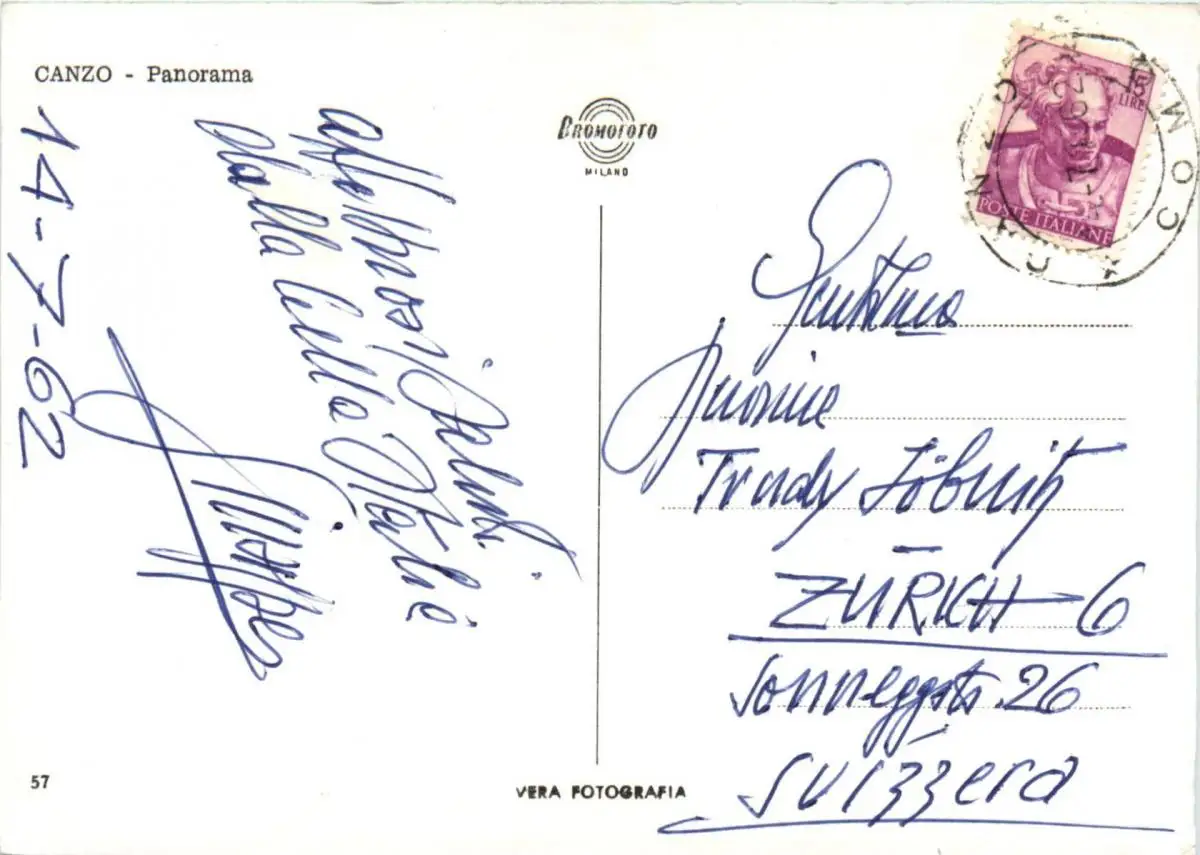 CANZO - Panorama
14-7-62
affettuosi saluti
dalla bella Italia
BROMOFOTO
MILANO
15
LIRE
POSTE ITALIANE
COMO
CANZO
Gent.ma
Trudy
ZÜRICH-6
Sonneggstr. 26
Svizzera
57
VERA FOTOGRAFIA